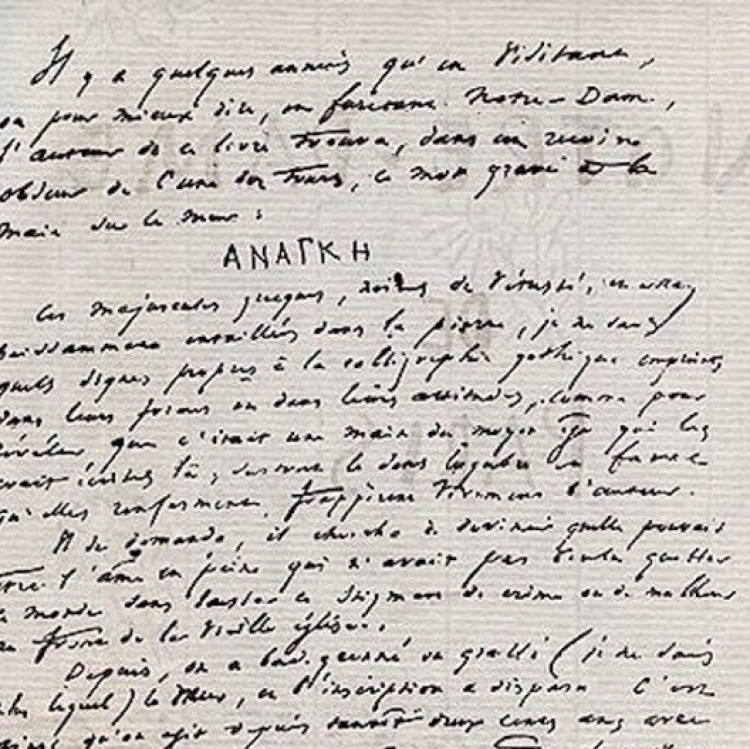 Il y a quelques années qu'en visitant,
ou pour mieux dire, en furetant Notre-Dame,
l'auteur de ce livre trouva, dans un recoin
obscur de l'une des tours, ce mot gravé à la
main sur le mur :
ΑΝΑΓΚΗ
Ces majuscules grecques, noires de vétusté, et assez
profondément entaillées dans la pierre, je ne sais
quels signes propres à la calligraphie gothique empreints
dans leurs formes et dans leurs attitudes, comme pour
révéler que c'était une main du moyen âge qui les
avait écrites là, surtout le sens lugubre et fatal
qu'elles renferment, frappèrent vivement l'auteur.
Il se demanda, il chercha à deviner quelle pouvait
être l'âme en peine qui n'avait pas voulu quitter
ce monde sans laisser ce stigmate de crime ou de malheur
au front de la vieille église.
Depuis, on a badigeonné ou gratté (je ne sais
plus lequel) le mur, et l'inscription a disparu. C'est
ainsi qu'on agit depuis tantôt deux cents ans avec